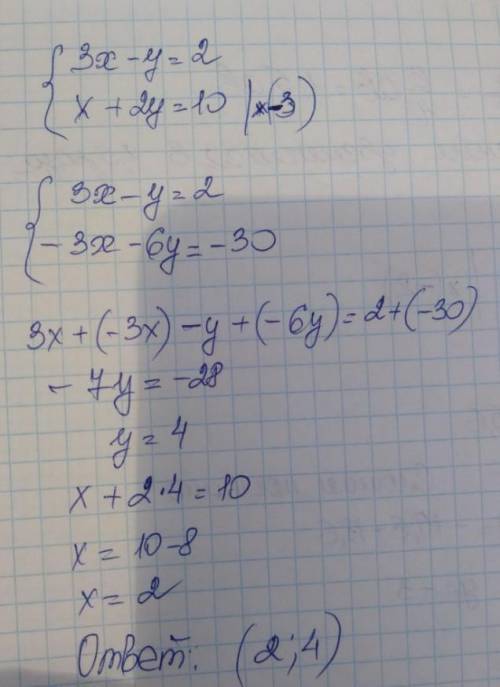 3x - y = 2
x + 2y = 10 |×(-3)
3x - y = 2
- 3x - 6y = - 30
3x + (- 3x) - y + (- 6y) = 2 + (- 30)
- 7y = -28
y = 4
x + 2·4 = 10
x = 10 - 8
x = 2
Ответ: (2; 4)